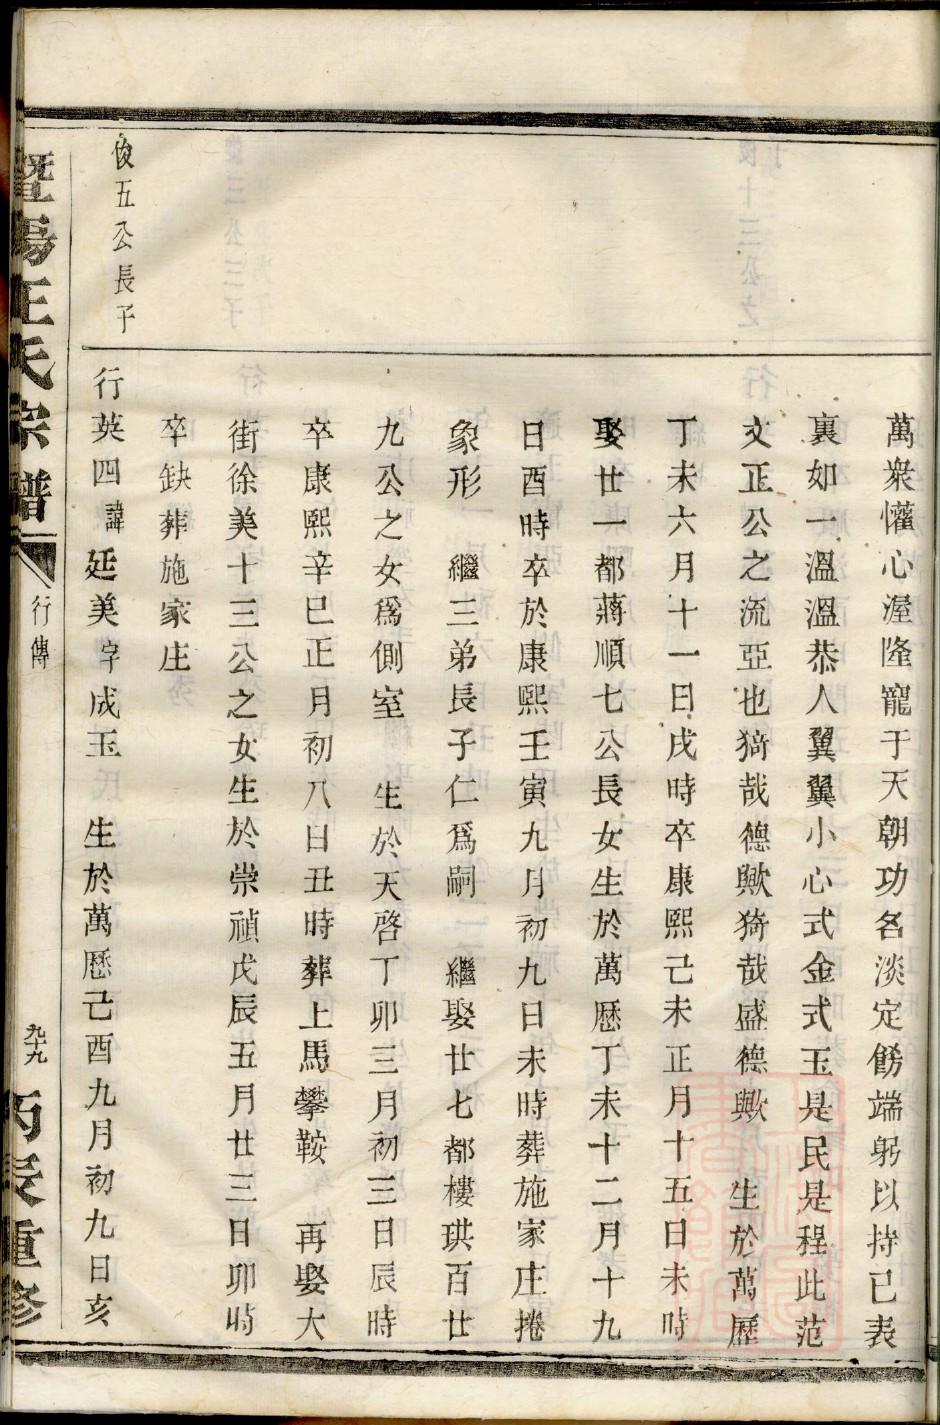 萬衆懽心渥隆寵于天朝功名淡定飭端躬以持已表
裏如一溫溫恭人翼翼小心式金式玉是民是程此范
文正公之流亞也猗哉德歟猗哉盛德歟　生於萬歷
丁未六月十一日戌時卒康熙己未正月十五日未時
娶廿一都蔣順七公長女生於萬歷丁未十二月十九
日酉時卒於康熙壬寅九月初九日未時葬施家庄捲
象形　繼三弟長子仁爲嗣　繼娶廿七都樓珙百廿
九公之女爲側室　生於天啓丁卯三月初三日辰時
卒康熙辛巳正月初八日丑時葬上馬攀鞍　再娶大
街徐美十三公之女生於崇禎戊辰五月廿三日卯時
卒缺葬施家庄
俊五公長子
行英四諱廷美字成玉　生於萬歷己酉九月初九日亥
暨陽王氏宗譜
行傳
九十九
丙辰重修